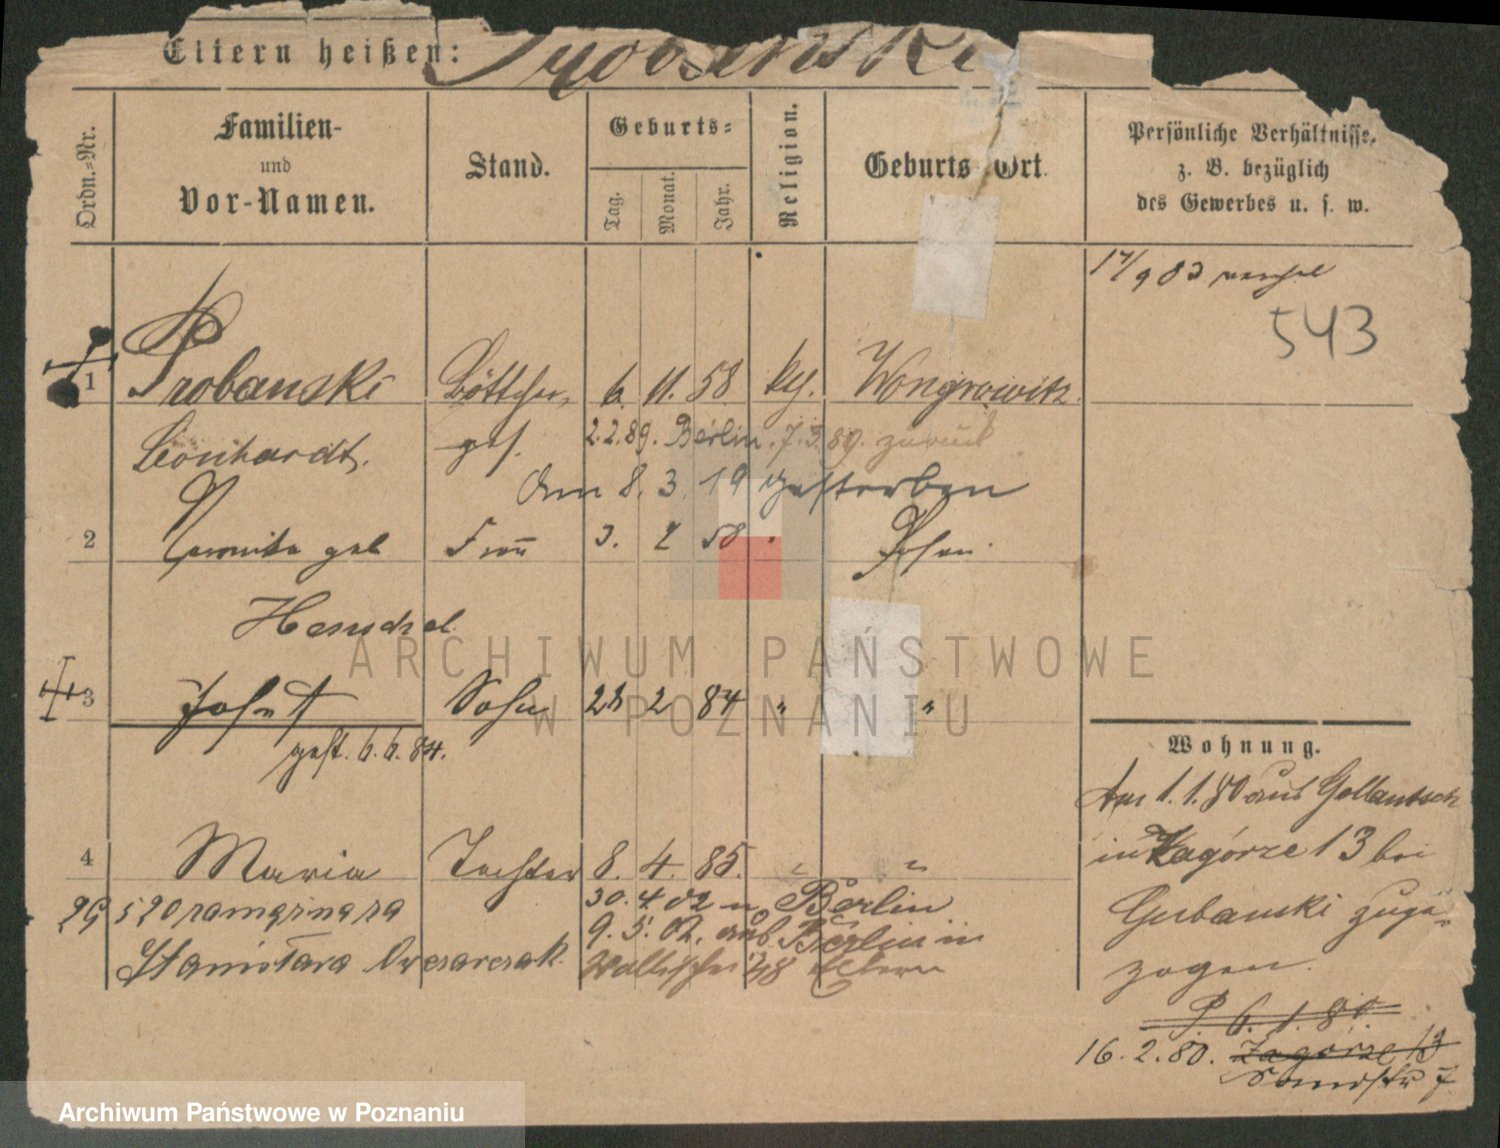 Eltern heißen:
Ordn.-Nr.
Familien-
und
Vor-Namen.
Stand.
Geburts-
Tag.
Monat.
Jahr.
Religion.
Geburts Ort.
Persönliche Verhältnisse,
z. B. bezüglich
des Gewerbes u. s. w.
17/9 83
543
1 Probanski Böttcher 6. 11. 58 kth. Wongrowitz
Leonhardt. ges. 2.2.89. Berlin. 7.3.89. zurück
Am 8. 3. 19 gestorben
2 geb Frau 3. 2 58 Posen.
3 Josef Sohn 28 2 84 " "
gest. 6. 6. 84.
4 Maria Tochter 8. 4. 85. " "
30. 4 02 n. Berlin
9. 5. 02. aus Berlin in
Stanislava Wallischei 48
Wohnung.
Am 1. 1. 80 aus Gollantsch
in Zagórze 13 bei
Gubanski zuge-
zogen.
P. 6. 1. 80.
16. 2. 80. Zagórze 13
7
ARCHIWUM PAŃSTWOWE
W POZNANIU
Archiwum Państwowe w Poznaniu